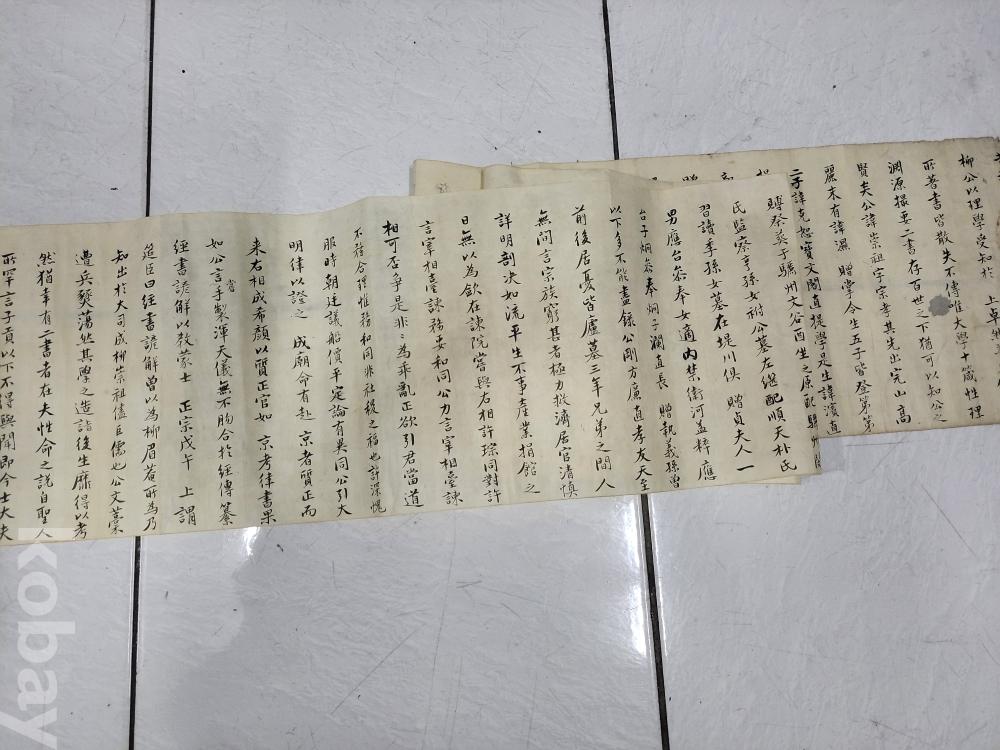 柳公以理學受知於 上卓然
所著書皆散失不傳惟大學十箴性理
淵源撮要二書存百世之下猶可以知公之
賢矣公諱崇祖字宗孝其先出完山高
麗末有諱濕 贈掌令生五子皆登第第
二子諱克恕寶文閣直提學是生諱濱直
賻祭葵于驪州文谷酉坐之原配驪州閔
氏監察亨孫女祔公墓左繼配順天朴氏
習讀季孫女墓在堤川俱 贈貞夫人一
男應台叅奉女適內禁衛河孟粹應
台子炯叅奉炯子瀾直長 贈執義孫曾
以下多不能盡錄公剛方廉直孝友天至
前後居憂皆廬墓三年兄弟之間人
無間言宗族窮甚者極力救濟居官清慎
詳明剖決如流平生不事産業捐館之
日無以為斂在諫院嘗與右相許琮同對許
言宰相臺諫務要和同公力言宰相臺諫
相可否爭是非〻為乖亂正欲引君當道
不務合理惟務和同非社稷之福也許深愧
服時朝廷議船價平定論有異同公引大
明律以證之 成廟命有赴 京者質正而
来右相成希顔以質正官如 京考律書果
如公言嘗手製渾天儀無不脗合於經傳纂
經書諺解以教蒙士 正宗戊午 上謂
筵臣曰經書諺解曽以為柳眉菴所為乃
知出於大司成柳崇祖儘巨儒也公文藁
遭兵燹蕩然其學之造詣後生靡得以考
然猶幸有二書者在夫性命之說自聖人
所罕言子貢以下不得與聞即今士大夫
kobay